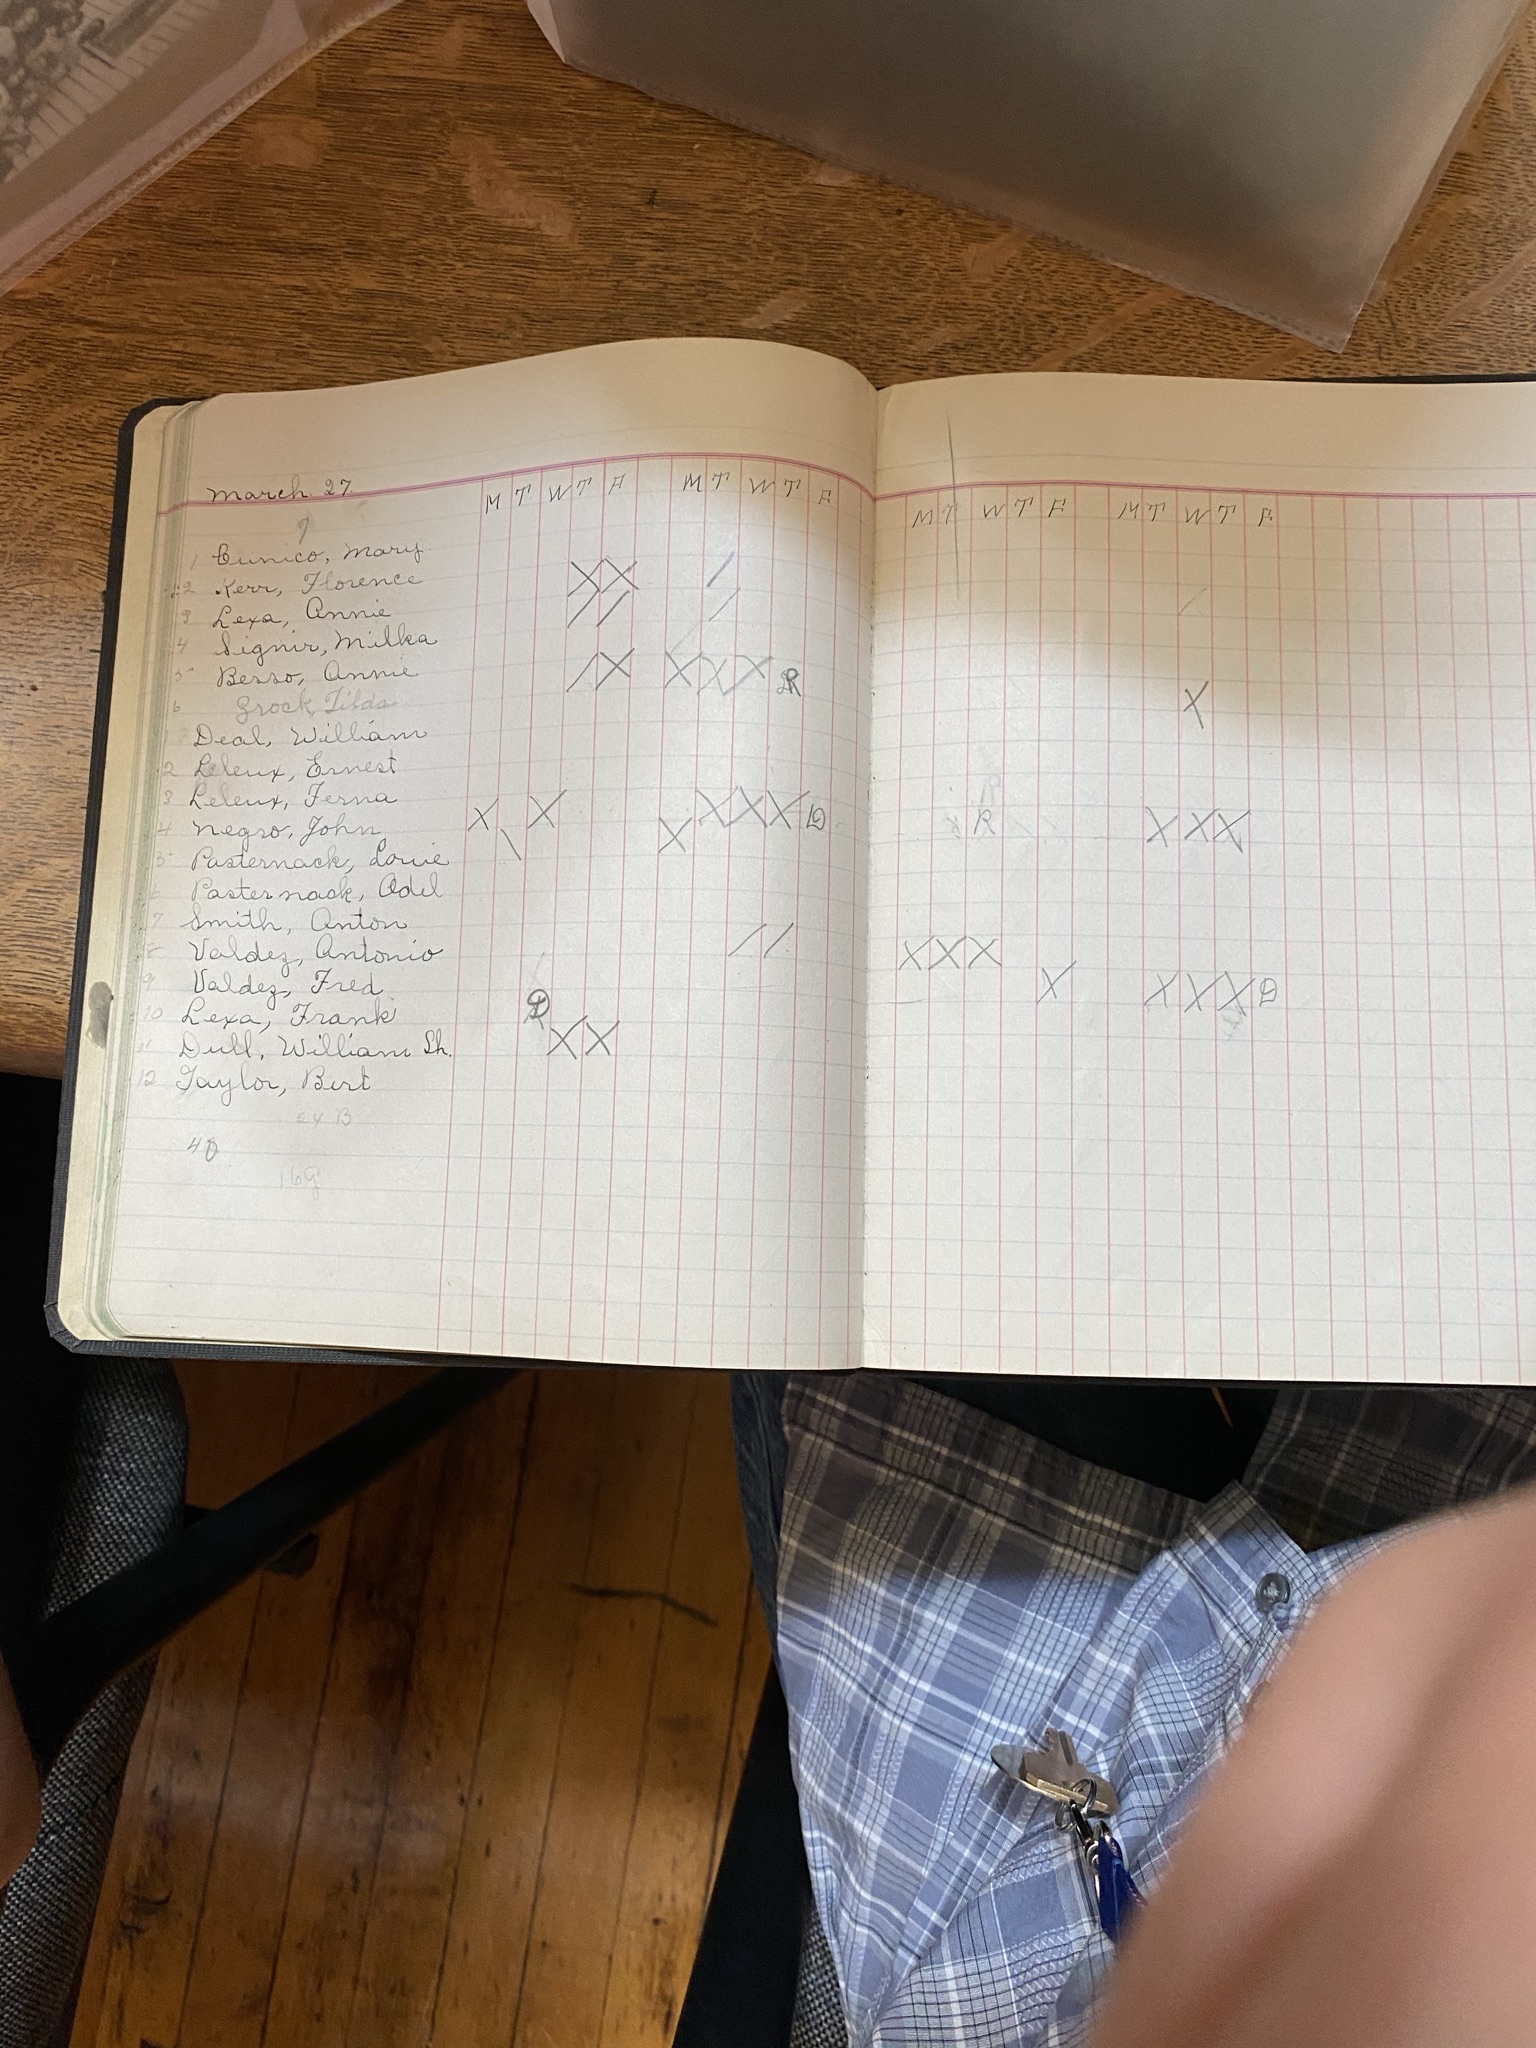 March 27. M T W T F M T W T F M T W T F M T W T F
7
1 Cunico, Mary
2 Kerr, Florence X X /
3 Lexa, Annie / / /
4 Signir, Milka
5 Besso, Annie / X X X X R
6 Grock, Tilda X
Deal, William
2 Leleux, Ernest
3 Leleux, Ferna
4 Negro, John X X X X X X D R X X X
5 Pasternack, Louie \
6 Pasternack, Adel
7 Smith, Anton
8 Valdez, Antonio / / X X X
9 Valdez, Fred X X X X D
10 Lexa, Frank D
11 Dull, William Sh. X X
12 Taylor, Bert
24 B
40
16 G